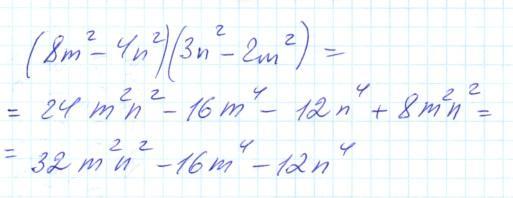 (8m² - 4n²)(3n² - 2m²) =
= 24 m²n² - 16m⁴ - 12n⁴ + 8m²n² =
= 32 m²n² - 16m⁴ - 12n⁴